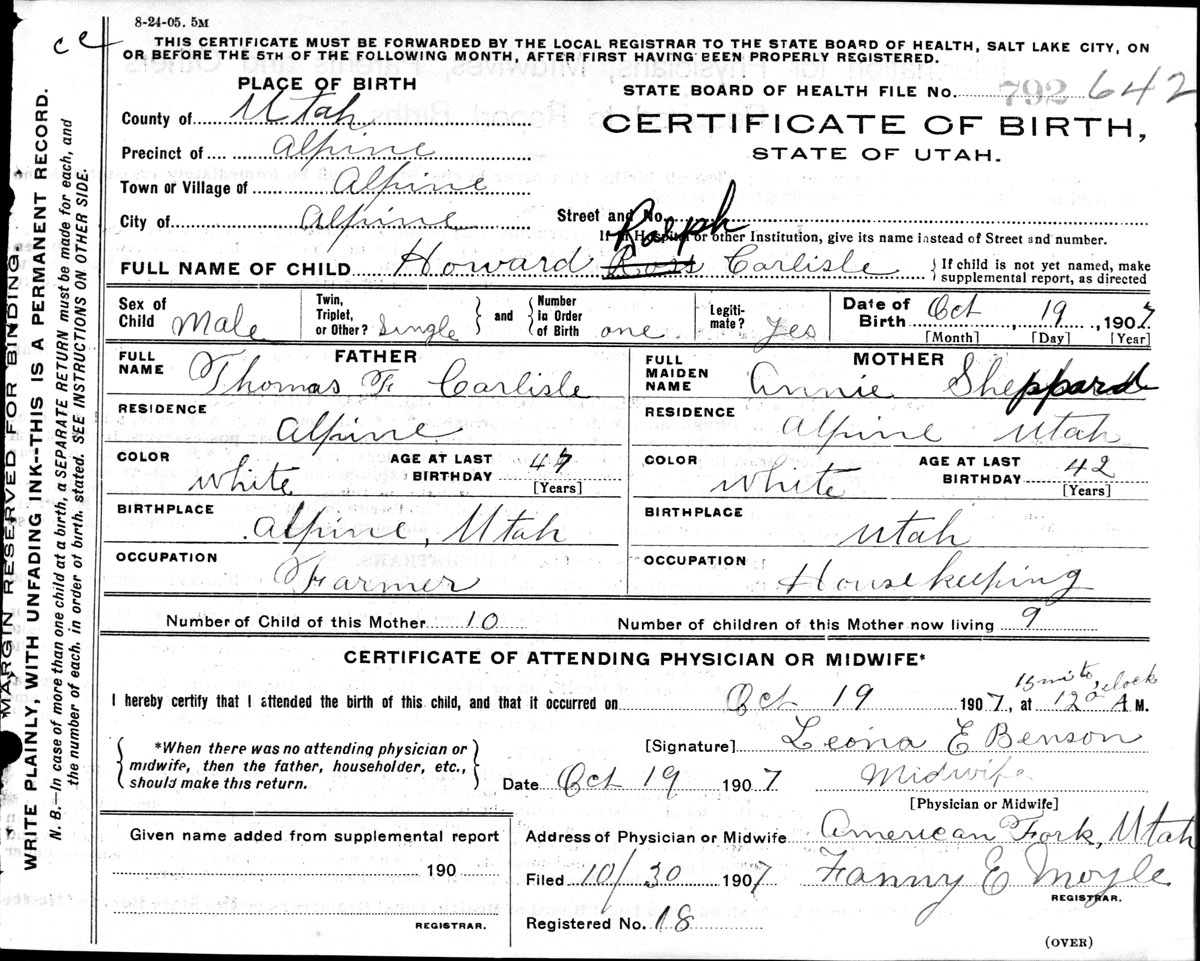 8-24-05. 5M
cc
THIS CERTIFICATE MUST BE FORWARDED BY THE LOCAL REGISTRAR TO THE STATE BOARD OF HEALTH, SALT LAKE CITY, ON
OR BEFORE THE 5TH OF THE FOLLOWING MONTH, AFTER FIRST HAVING BEEN PROPERLY REGISTERED.
MARGIN RESERVED FOR BINDING.
WRITE PLAINLY, WITH UNFADING INK--THIS IS A PERMANENT RECORD.
N. B.—In case of more than one child at a birth, a SEPARATE RETURN must be made for each, and
the number of each, in order of birth, stated. SEE INSTRUCTIONS ON OTHER SIDE.
PLACE OF BIRTH
STATE BOARD OF HEALTH FILE No. 792 642
County of Utah
CERTIFICATE OF BIRTH,
STATE OF UTAH.
Precinct of Alpine
Town or Village of Alpine
City of Alpine
Street and No.
If in Hospital or other Institution, give its name instead of Street and number.
Ralph
FULL NAME OF CHILD Howard Ross Carlisle
If child is not yet named, make
supplemental report, as directed
Sex of Child Male
Twin, Triplet, or Other? Single
and
Number In Order of Birth one
Legiti-mate? Yes
Date of Birth Oct 19, 1907
[Month] [Day] [Year]
FATHER
FULL NAME Thomas F Carlisle
RESIDENCE Alpine
COLOR white
AGE AT LAST BIRTHDAY 47
[Years]
BIRTHPLACE Alpine, Utah
OCCUPATION Farmer
MOTHER
FULL MAIDEN NAME Annie Sheppard
RESIDENCE Alpine Utah
COLOR white
AGE AT LAST BIRTHDAY 42
[Years]
BIRTHPLACE Utah
OCCUPATION Housekeeping
Number of Child of this Mother 10
Number of children of this Mother now living 9
CERTIFICATE OF ATTENDING PHYSICIAN OR MIDWIFE*
15 mits, oclock
I hereby certify that I attended the birth of this child, and that it occurred on Oct 19 1907, at 12 A M.
*When there was no attending physician or
midwife, then the father, householder, etc.,
should make this return.
[Signature] Leona E Benson
Date Oct 19 1907
Midwife
[Physician or Midwife]
Given name added from supplemental report
190
REGISTRAR.
Address of Physician or Midwife American Fork, Utah
Filed 10/30 1907 Fanny E Moyle
REGISTRAR.
Registered No. 18
(OVER)